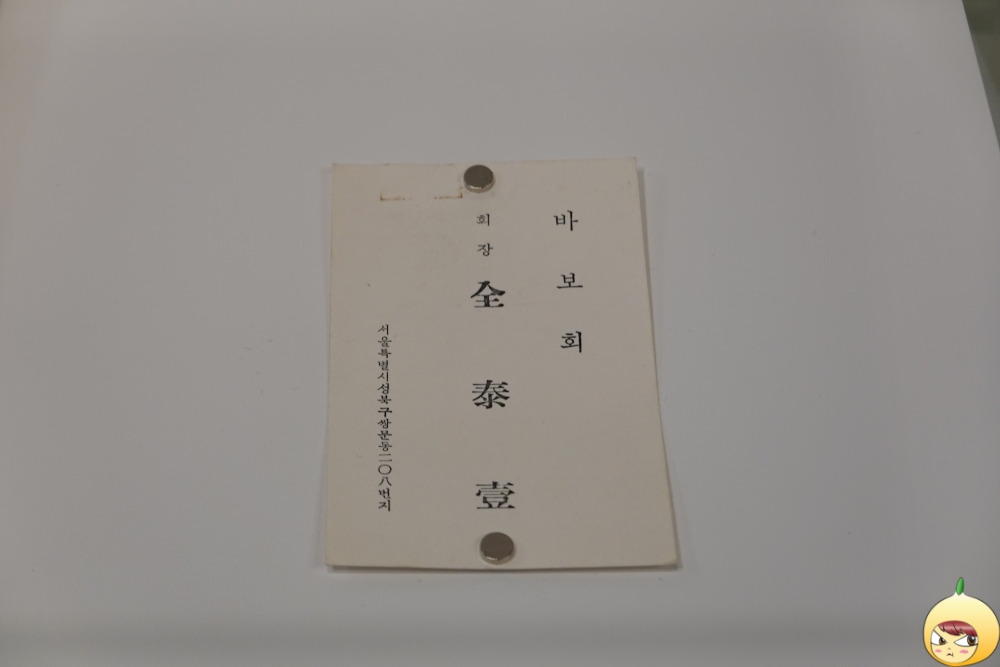 바보회
회장 全泰壹
서울특별시성북구쌍문동二〇八번지